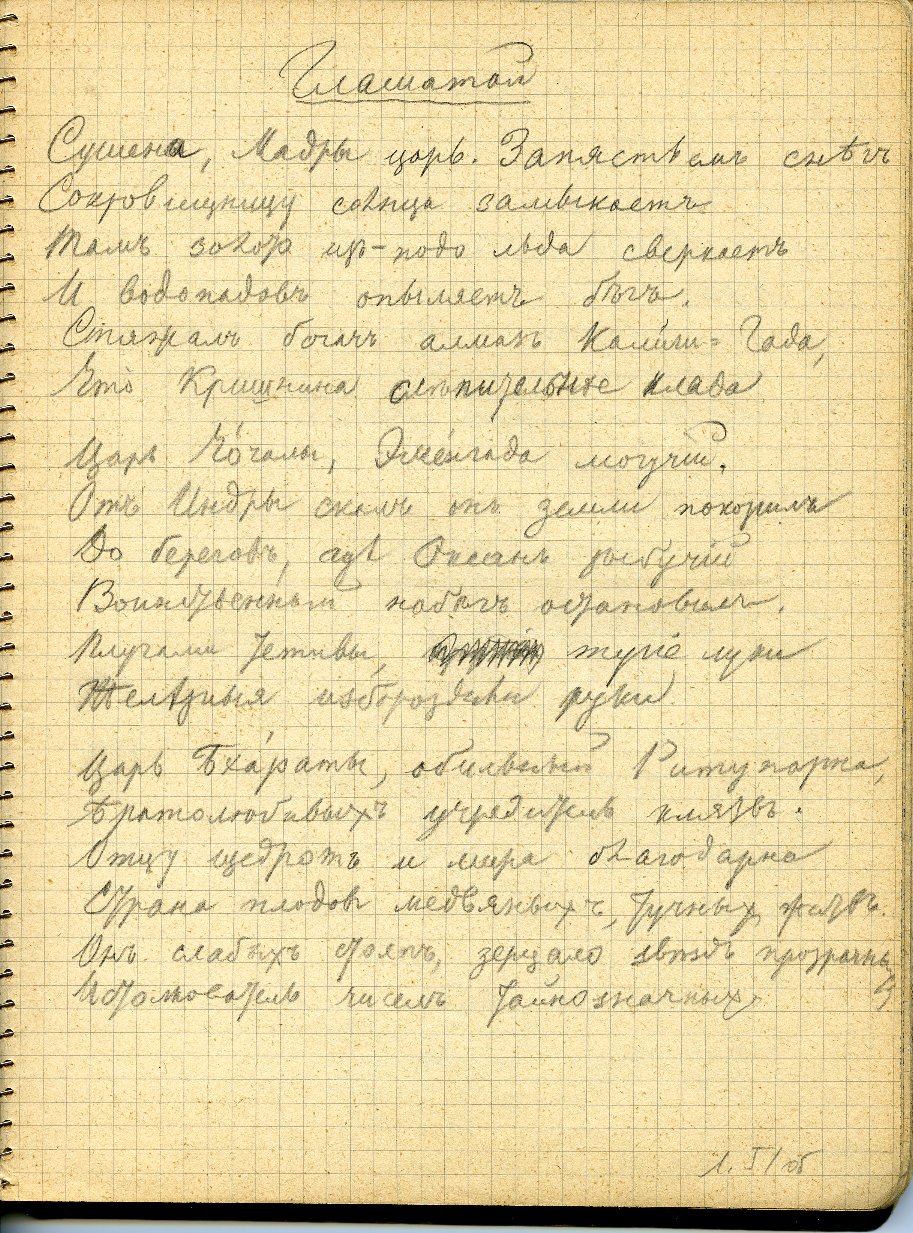 Глашатай
Сушена, Мадры царь. Запястьемъ снѣгъ
Сокровищницу солнца замыкаетъ
Тамъ золото из-подо льда сверкаетъ
И водопадовъ опыляетъ бѣгъ.
Стяжалъ богачъ алмазъ Кали-Гада,
Что Кришнина слѣпительнѣе клада
Царь могучій.
Отъ Индры скалъ онъ земли покорилъ
До береговъ, гдѣ Океанъ зыбучій
Воинственный набѣгъ остановилъ.
Плугами тетивы, тугіе луки
Желѣзныя избороздили руки.
Царь Бха́раты, обильный Ритупарна,
Братолюбивыхъ учредитель князь.
Отцу щедротъ и мира благодарна
Страна плодовъ медвяныхъ, тучных жатвъ.
Онъ слабыхъ столпъ, зерцало звѣздъ прозрачных
Истолкователь чиселъ тайнозначных
л. I/об